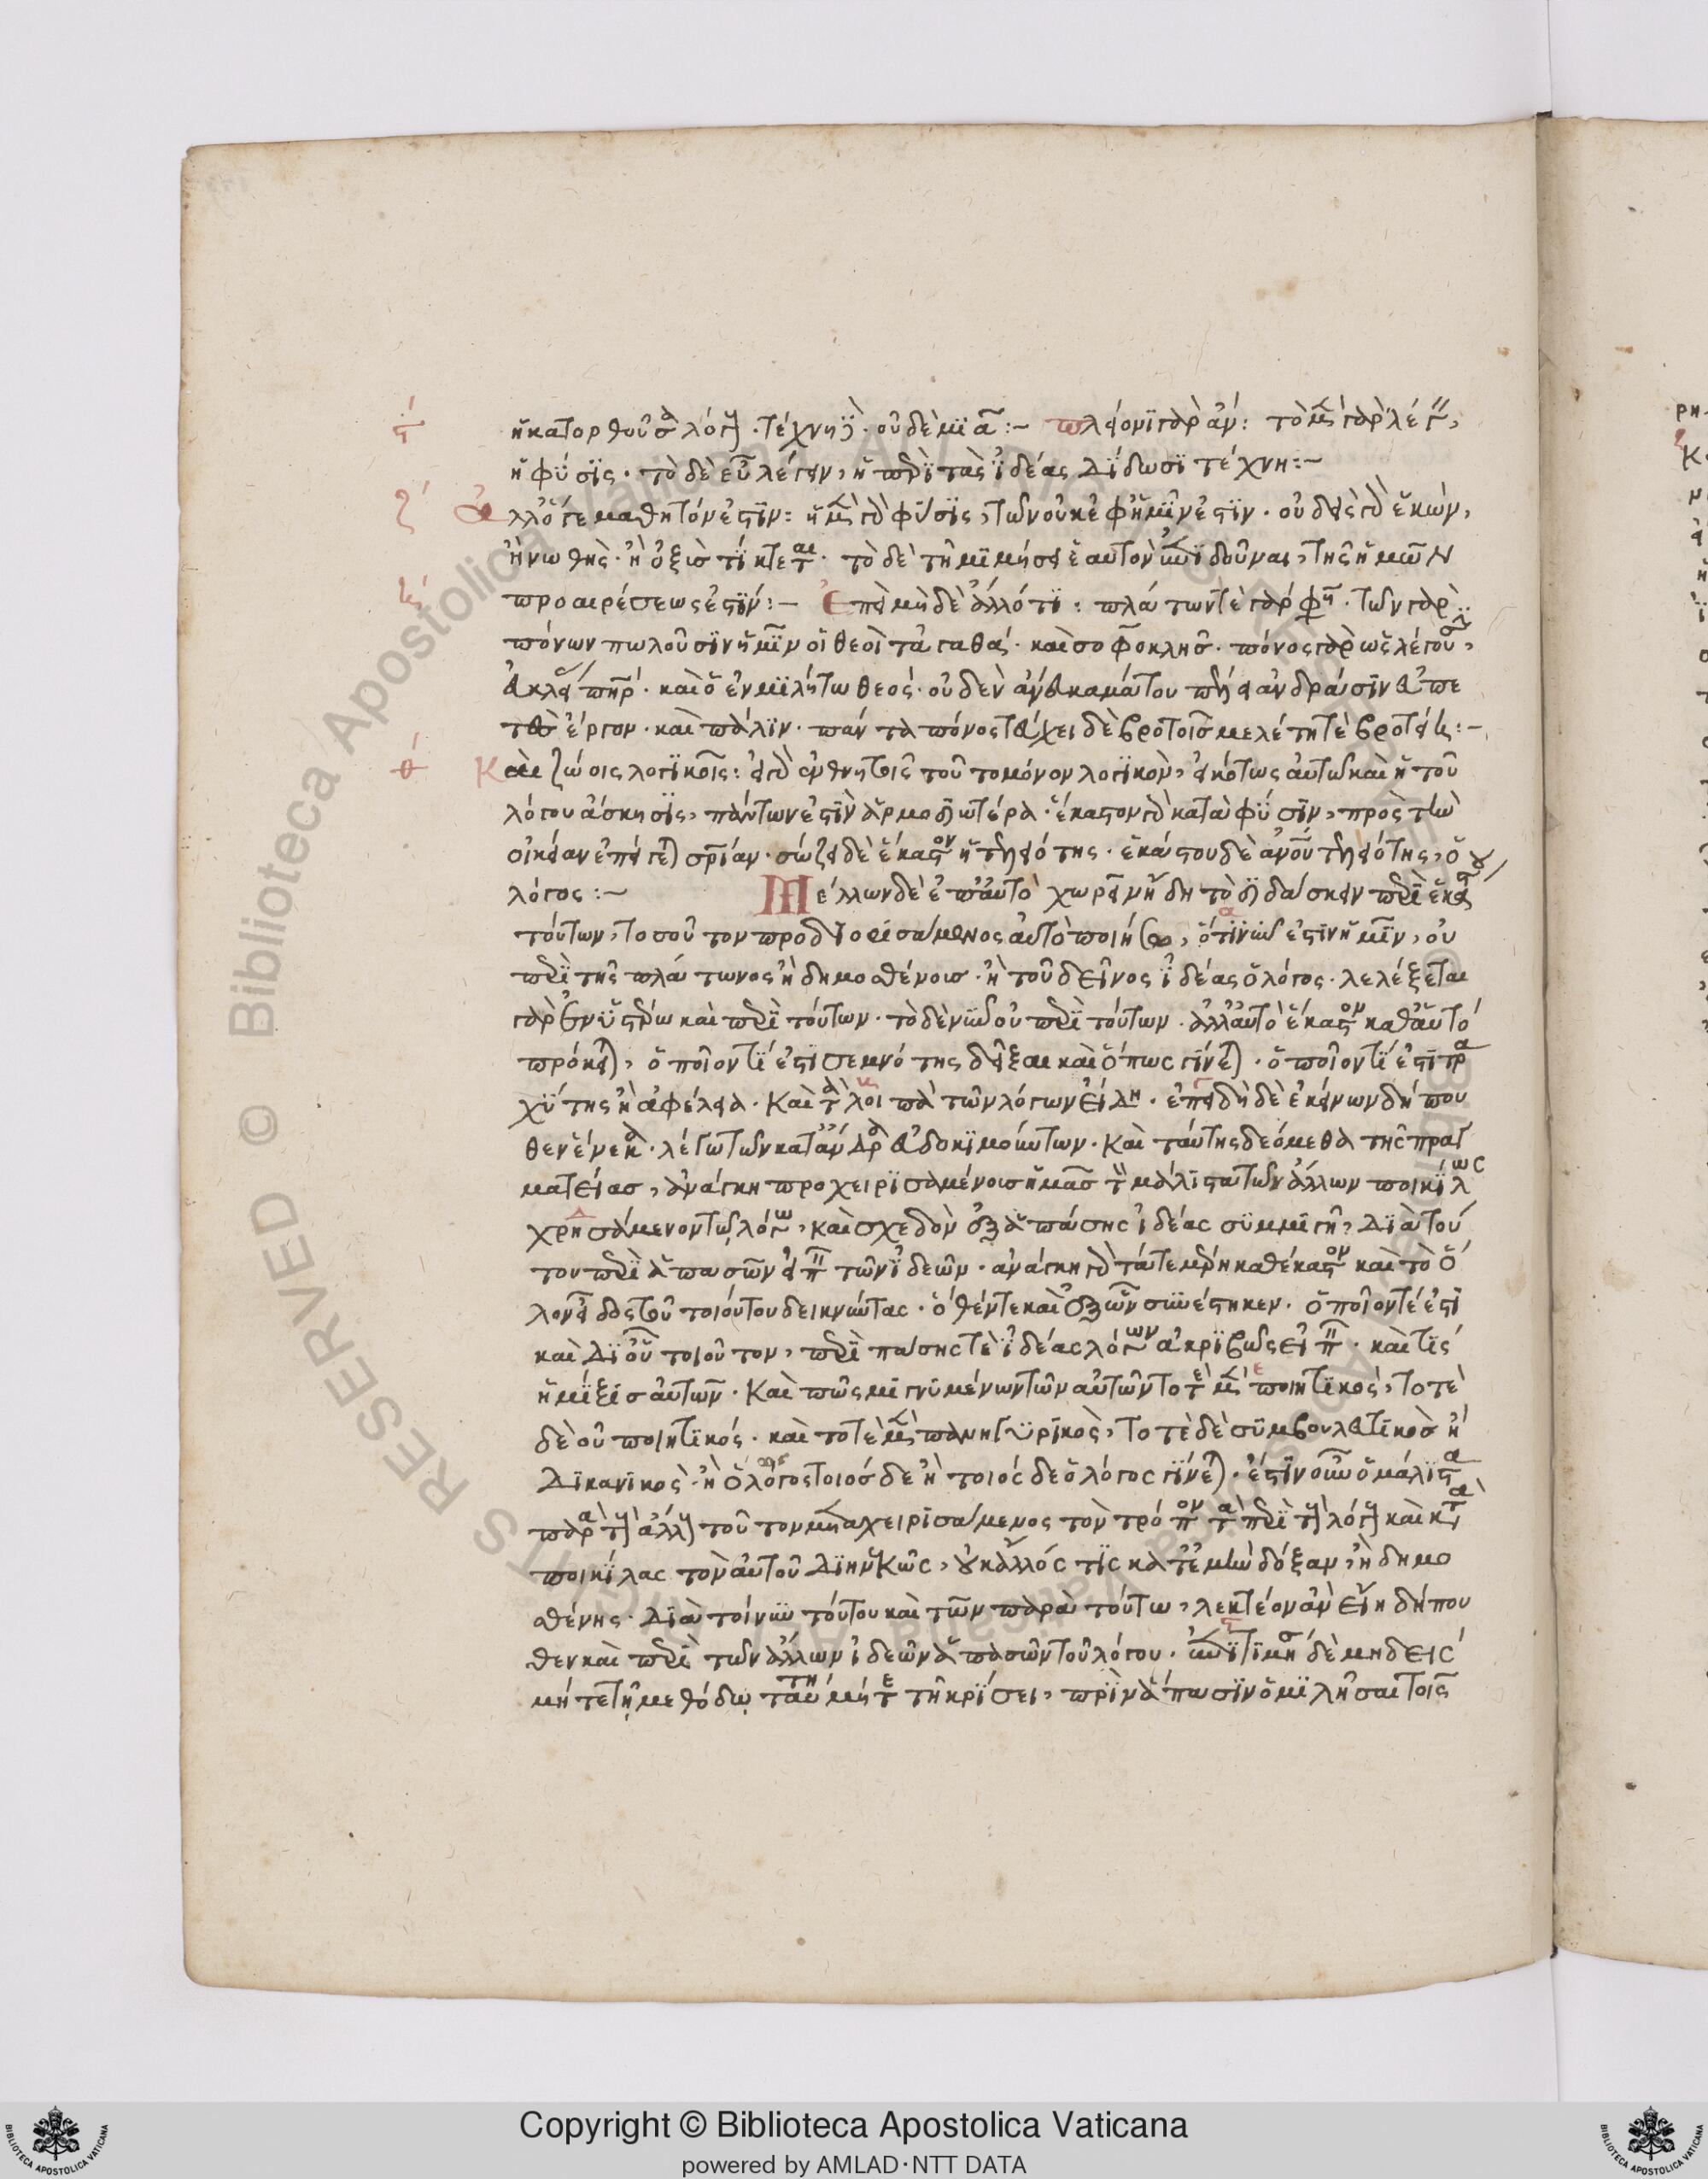 ἡ κατορθοῦσα λόγον. τέχνη δὲ οὐδεμία:– πλείονι γὰρ ἄν: τὸ μὲν γὰρ λέγειν,
ἡ φύσις. τὸ δὲ εὖ λέγειν, ἡ περὶ τὰς ἰδέας δίδωσι τέχνη:–
ἄλλο γε μαθητόν ἐστιν: ἡ μὲν γὰρ φύσις, τῶν οὐκ ἐφ' ἡμῖν ἐστιν. οὐδεὶς γὰρ ἑκὼν,
ἢ νωθὴς ἢ ὀξὺς τίκτεται. τὸ δὲ τῇ μιμήσει ἑαυτὸν ἐπιδοῦναι, τῆς ἡμῶν
προαιρέσεως ἐστίν:– Ἐπεὶ μηδὲ ἄλλό τι: πλάτων τὲ γάρ φησι. τῶν γὰρ
πόνων πωλοῦσιν ἡμῖν οἱ θεοὶ τἀγαθά. καὶ σοφοκλῆς. πόνος γὰρ ὡς λέγουσιν,
εὐκλείας πατήρ. καὶ ὁ ἐν μιλήτω θεός. οὐδὲν ἄνευ καμάτου
ἔργον. καὶ πάλιν. πάντα πόνος τεύχει δὲ βροτοῖς μελέτη τὲ βροτείη:–
Καὶ ζώοις λογικοῖς: εἰ γὰρ ἄνθρωπος τοῦτο μόνον λογικὸν, εἰκότως αὐτῶ καὶ ἡ τοῦ
λόγου ἄσκησις, πάντων ἐστὶν ἁρμοδιωτέρα. ἕκαστον γὰρ κατὰ φύσιν, πρὸς τὴν
οἰκείαν ἐπείγεται σωτηρίαν. σώζει δὲ ἕκαστον ἡ τελειότης. ἑκάστου δὲ ἀνθρώπου τελειότης, ὁ
λόγος:– Μέλλων δὲ ἐπ' αὐτὸ χωρεῖν ἤδη τὸ διδάσκειν περὶ ἑκάστου
τούτων, τοσοῦτον προδιορισάμενος αὐτὸ ποιήσω, ὅτι νῦν ἐστιν ἡμῖν, οὐ
περὶ τῆς πλάτωνος ἢ δημοσθένους. ἢ τοῦ δεῖνος ἰδέας ὁ λόγος. λελέξεται
γὰρ ἐν ὑστέρω καὶ περὶ τούτων. τὸ δὲ νῦν οὐ περὶ τούτων. ἀλλ' αὐτὸ ἕκαστον καθ' αὑτὸ
πρόκειται, ὁποῖον τί ἐστι σεμνότης δεῖξαι καὶ ὅπως γίνεται. ὁποῖον τί ἐστι τρα
χύτης ἢ ἀφέλεια. καὶ τὰ λοιπὰ τῶν λόγων εἴδη. ἐπειδὴ δὲ ἐκείνων δήπου
θεν ἕνεκα. λέγω τῶν κατ' ἄνδρα εὐδοκιμούντων. καὶ ταύτης δεόμεθα τῆς πραγ
ματείας, ἀνάγκη προχειρισαμένοις ἡμᾶς τὸν μάλιστα τῶν ἄλλων ποικίλως
χρησάμενον τῷ λόγω, καὶ σχεδὸν ἐξ ἁπάσης ἰδέας συμμιγῆ, διὰ τού
του περὶ ἁπασῶν εἰπεῖν τῶν ἰδεῶν. ἀνάγκη γὰρ τά τε μέρη καθέκαστον καὶ τὸ ὅ
λον εἶδος τοῦ τοιούτου δεικνύντας. ὅθέν τε καὶ ἐξ ὧν συνέστηκεν. ὁποῖον τέ ἐστι
καὶ δι' οὗ τοιοῦτον, περὶ πάσης τὲ ἰδέας λόγων ἀκριβῶς εἰπεῖν. καὶ τίς
ἡ μίξις αὐτῶν. καὶ πῶς μιγνυμένων τῶν αὐτῶν τοτὲ μὲν ποιητικὸς, τοτὲ
δὲ οὐ ποιητικός. καὶ τοτὲ μὲν πανηγυρικὸς, τοτὲ δὲ συμβουλευτικὸς ἢ
δικανικὸς. ἢ ὅλος τοιόσδε ἢ τοιόσδε ὁ λόγος γίνεται. ἔστιν οὖν ὁ μάλιστα
παρὰ τὸν ἄλλον τοῦτον μεταχειρισάμενος τὸν τρόπον τὰ περὶ τὸν λόγον καὶ κατα
ποικίλας τὸν αὐτοῦ διηνεκῶς, οὐκ ἄλλος τις κατά γε ἐμὴν δόξαν, ἢ δημο
σθένης. διὰ τοίνυν τούτου καὶ τῶν παρὰ τούτω, λεκτέον ἂν εἴη δήπου
θεν καὶ περὶ τῶν ἄλλων ἰδεῶν ἁπασῶν τοῦ λόγου. ἐπιτιμήσῃ δὲ μηδεὶς
μήτε τῇ μεθόδῳ ταύτη μήτε τῇ κρίσει, πρὶν ἅπασιν ὁμιλῆσαι τοῖς
Copyright © Biblioteca Apostolica Vaticana
powered by AMLAD·NTT DATA